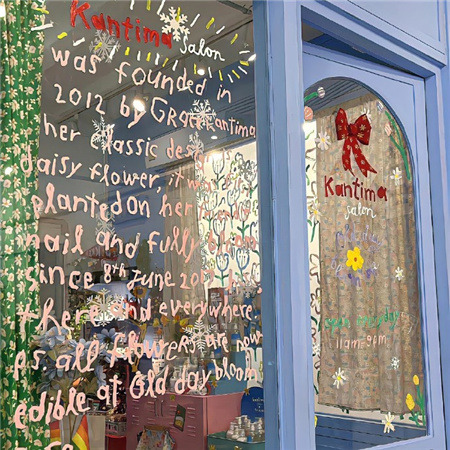 Kantima Salon
was founded in
2012 by Grace Kantima
her classic
daisy flower, it was
planted on her
nail and fully bloom
since 8th June 20
there and everywhere
ps. all flowers are now
edible at Old day bloom
Kantima
salon
open everyday
11am-9pm